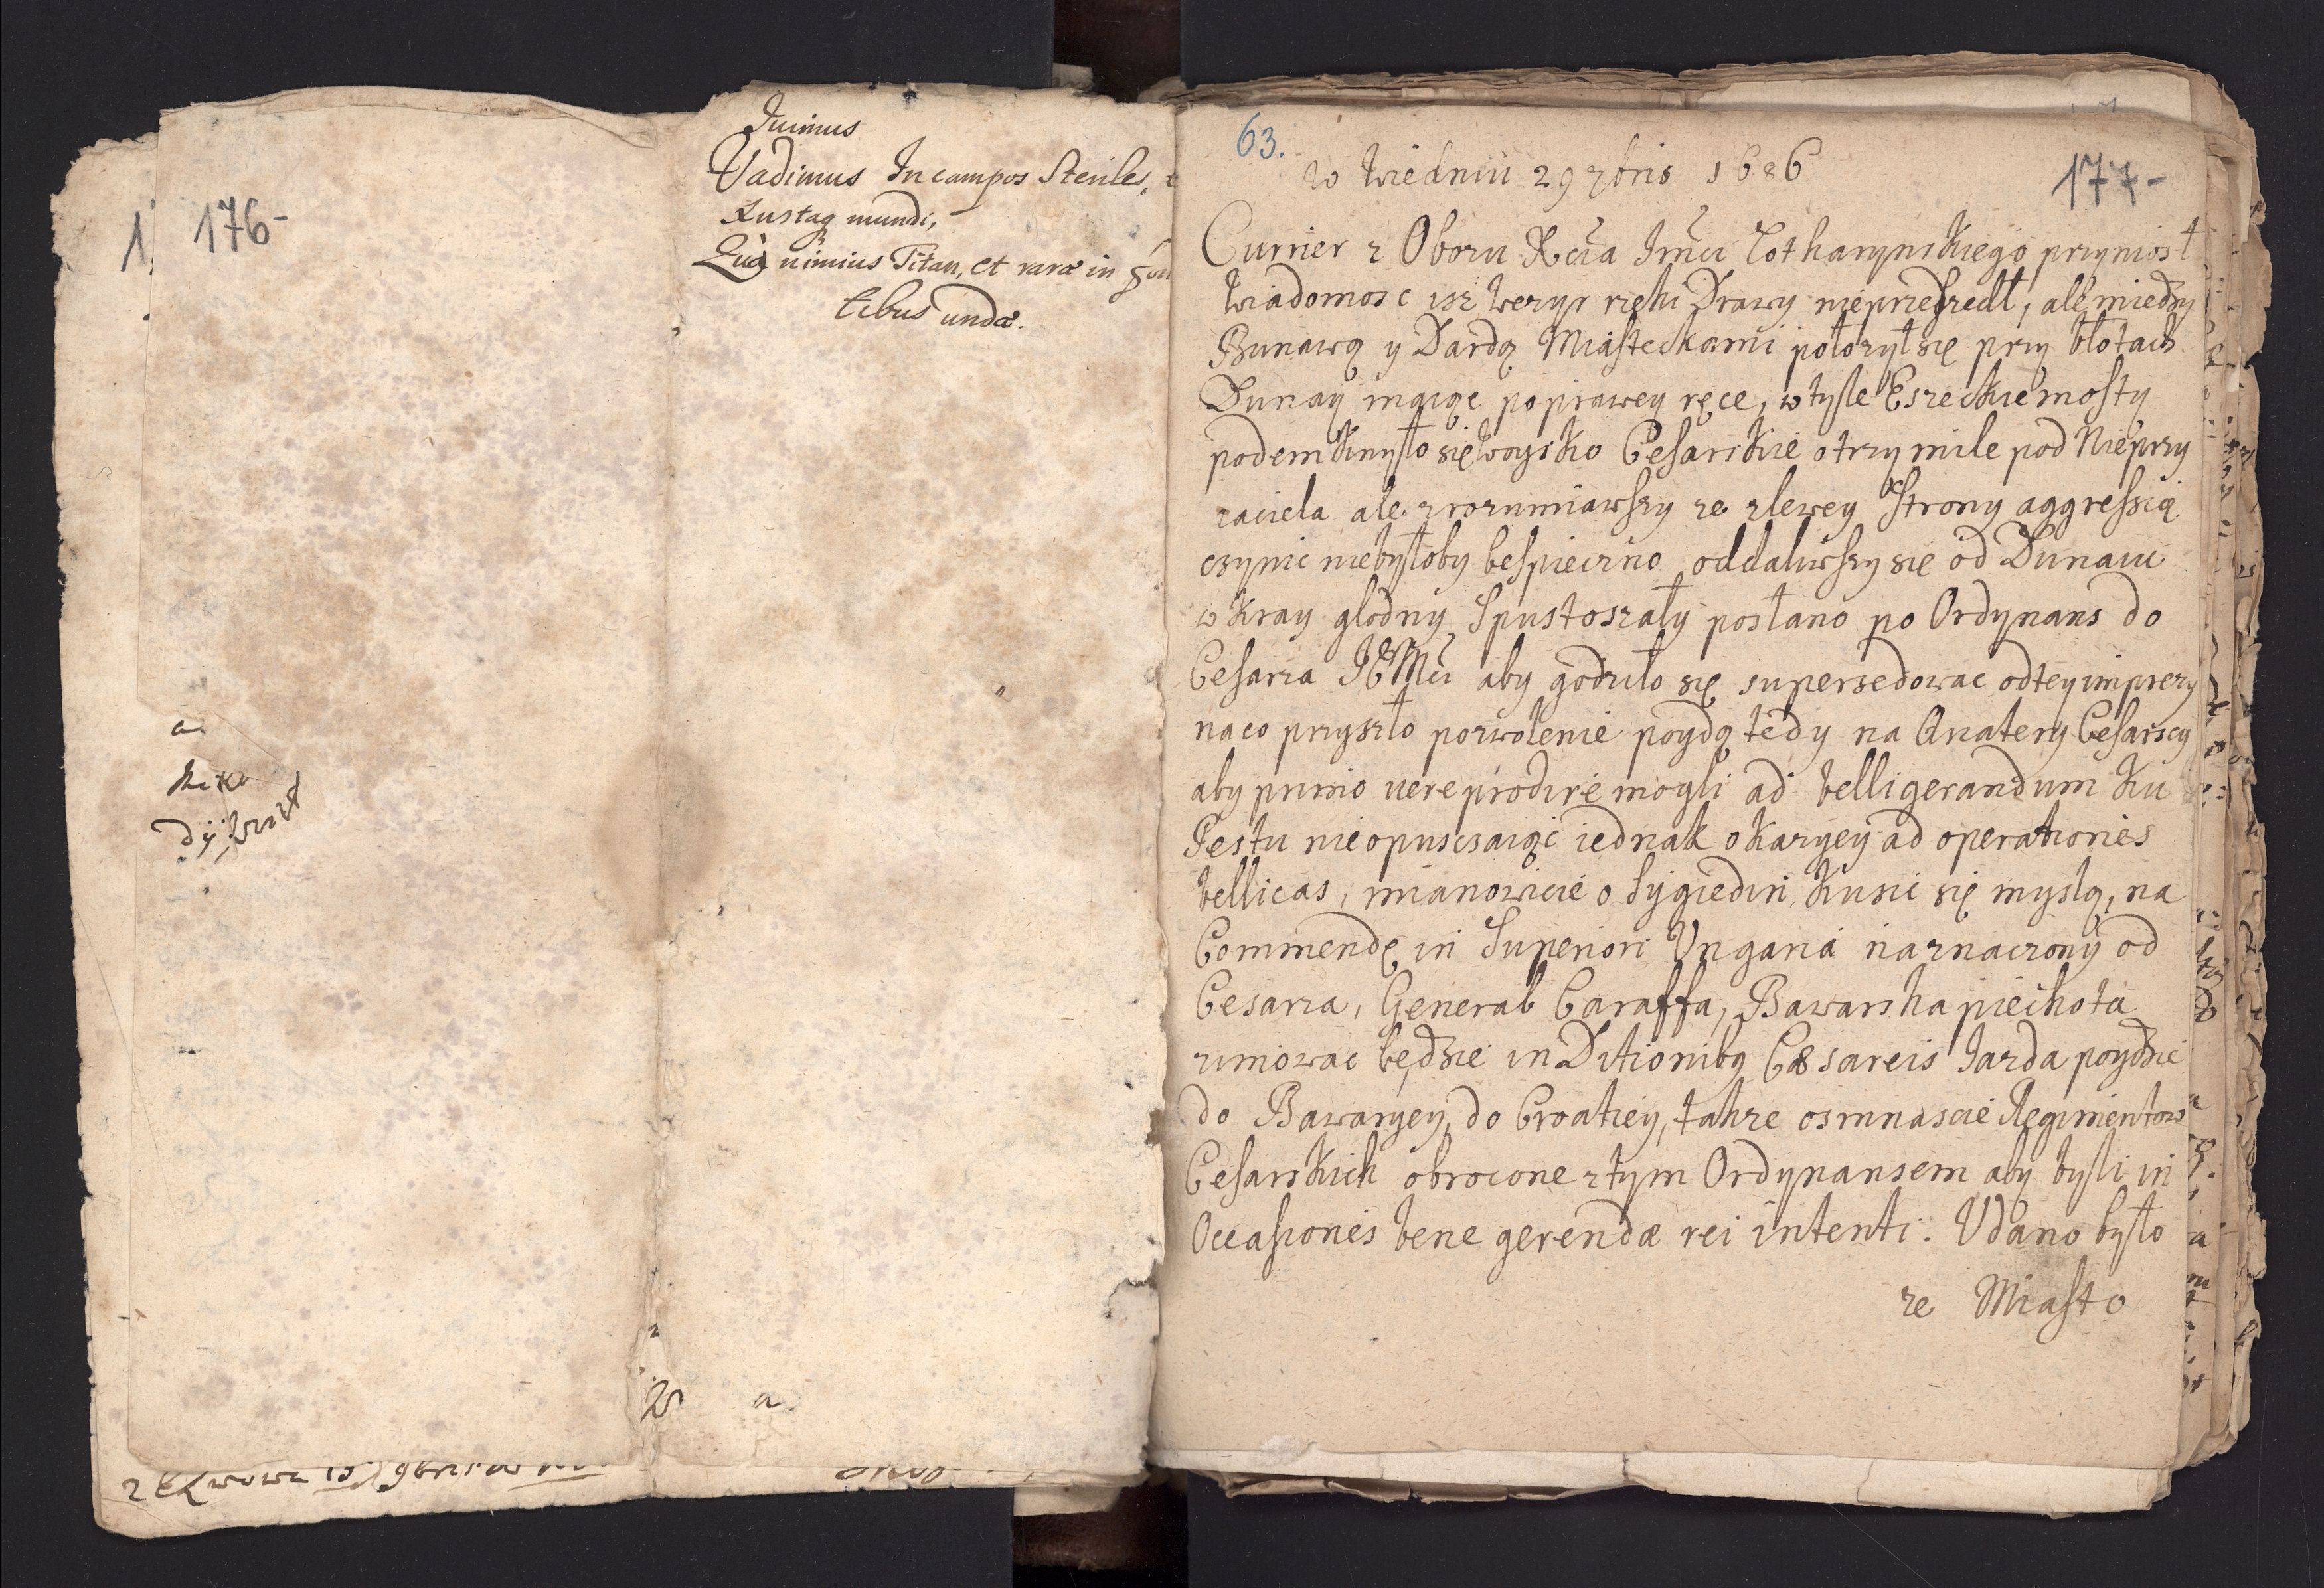 176-
Iuimus
Vadimus In campos steriles,
Lustaq mundi,
Quą nimius Titan, et raræ in
tibus undæ.
a
dÿ
a
63.
177-
w Wiedniu 29 7bris 1686
Currier z Obozu Xcia Imci Lotharynskiego przyniosł
wiadomosc isz Wezyr rzeki Drawy nieprzeszedł, ale miedzy
Bunawą y Dardą Miasteckami położył się przy błotach
Dunay maiąc po prawey ręce, w tyle Eszeckie mosty
podemknyło się woysko Cesarskie o trzy mile pod Nieprzy
iaciela ale zrozumiawszy ze zlewey strony aggressią
czynic niebyłoby bespieczno oddaliwszy się od Dunaiu
w kray glodny Spustoszały posłano po Ordynans do
Cesarza JEMci aby godziło się supersedowac od tey imprezy
na co przyszło pozwolenie poydą tedy na Quatery Cesarscy
aby primo uere prodire mogli ad belligerandum ku
Pestu nieopuscsaiąc iednak okazyey ad operationes
bellicas, mianowicie o Sygiedin kusic się myslą, na
Commendę in Superiori Ungaria naznaczony od
Cesarza, General Caraffa, Bawarska piechota
zimowac będzie in Ditionibq Cæsareis Iazda poydzie
do Bawaryey, do Croatiey, takze osmnascie Regimentow
Cesarskich obrocone z tym Ordynansem aby byli in
Occasiones bene gerendæ rei intenti. Udano było
ze Miasto